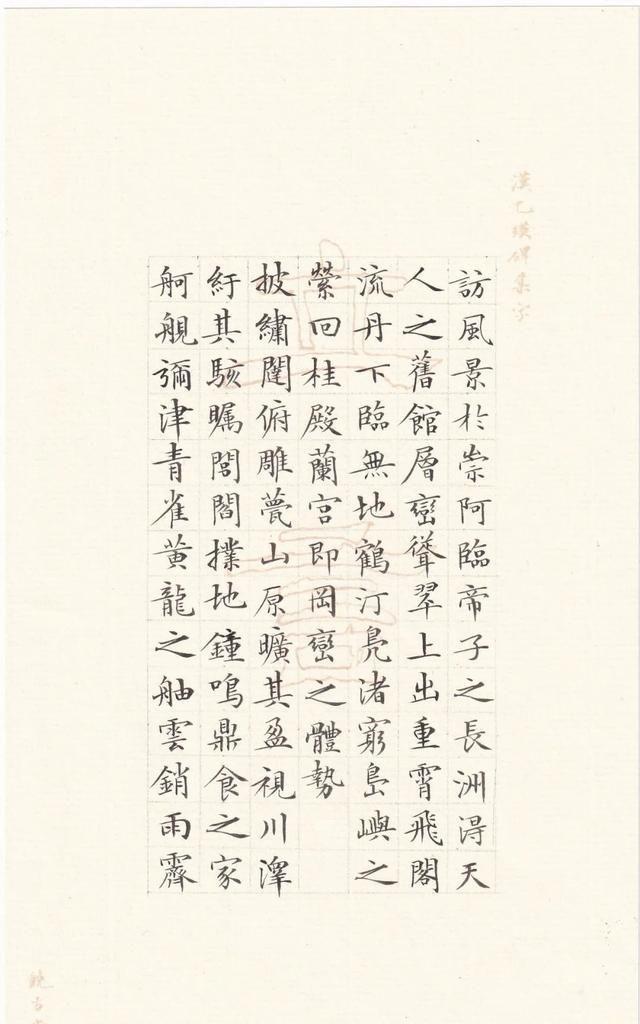 漢乙瑛碑集字
訪風景於崇阿臨帝子之長洲淂天
人之舊館層巒聳翠上出重霄飛閣
流丹下臨無地鶴汀鳧渚窮島嶼之
縈回桂殿蘭宫即岡巒之體勢
披繡闥俯雕甍山原曠其盈視川澤
紆其駭矚閭閻撲地鐘鳴鼎食之家
舸艦彌津青雀黄龍之舳雲銷雨霽